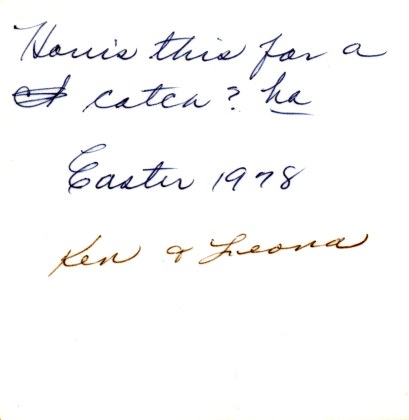 How's this for a
catch? ha
Easter 1978
Ken & Leona